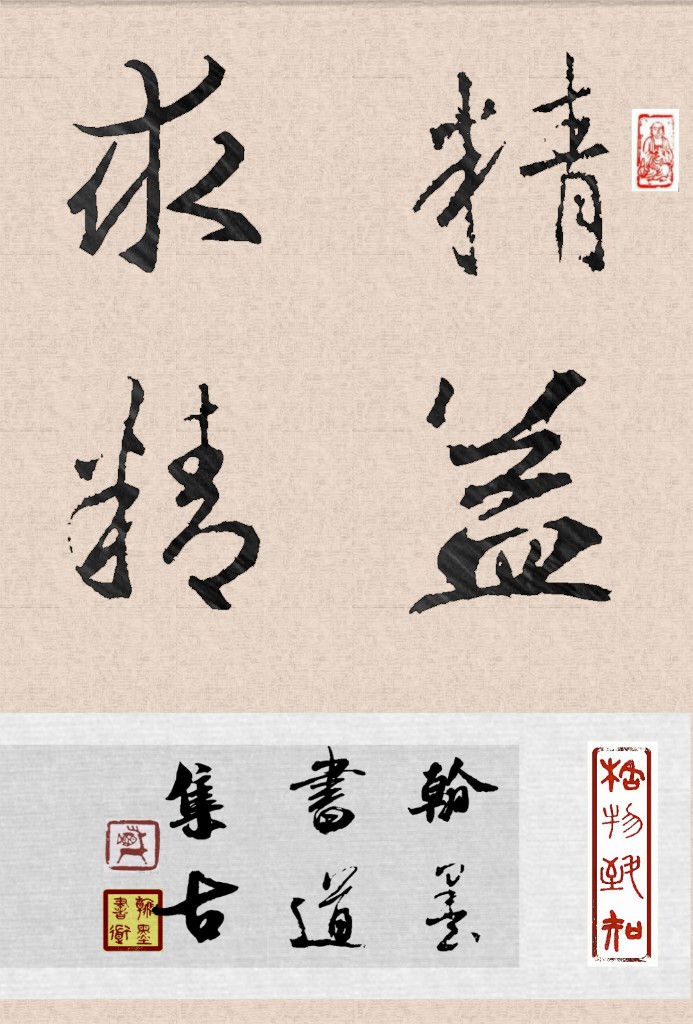 精益
求精
格物致知
翰墨
書道
集古
翰墨
書衜